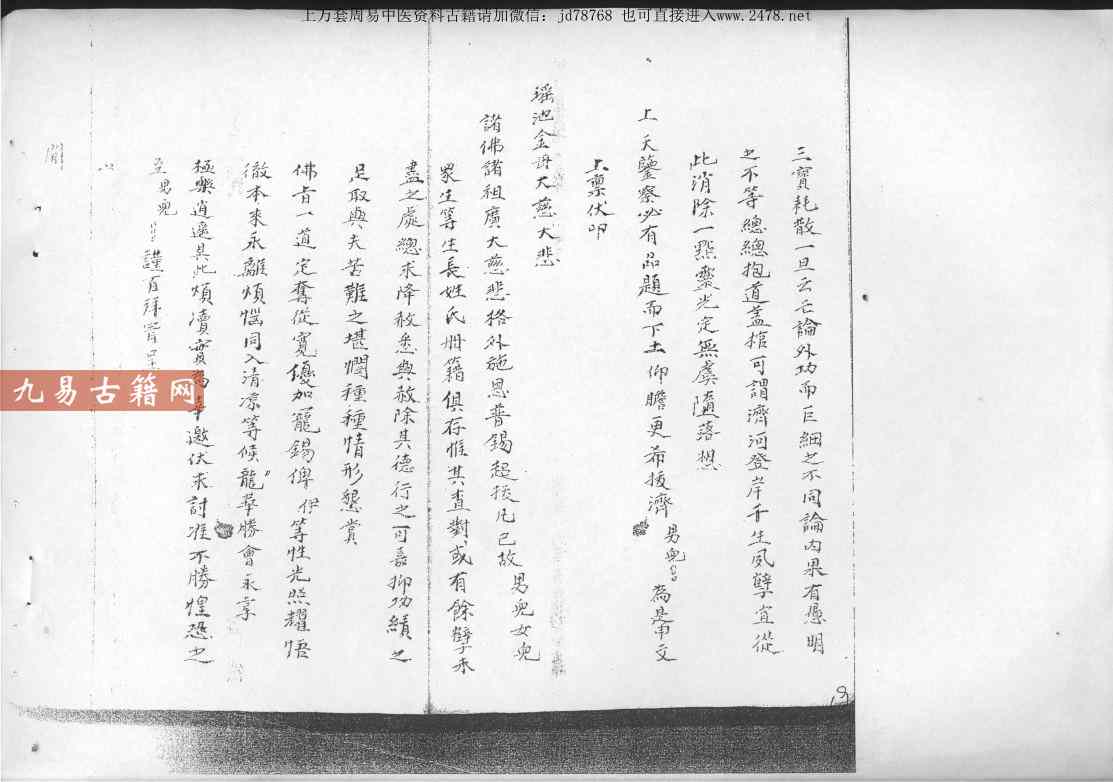 上万套周易中医资料古籍请加微信：jd78768 也可直接进入www.2478.net
三寶耗散一旦云亡論外功而巨細之不同論內果有愚明
之不等總總抱道蓋棺可謂濟河登岸千生夙孽宜從
此消除一點靈光定無虞墮落想
上天鑒察必有品題而下土仰瞻更希援濟男兒 為是申文
上稟伏叩
瑶池金母大慈大悲
諸佛諸祖廣大慈悲格外施恩普錫超拔凡已故男兒女兒
眾生等生長姓氏冊籍俱存惟其查對或有餘孽未
盡之處總求降赦悉與赦除其德行之可嘉抑功績之
足取與夫苦難之堪憫種種情形懇賞
佛旨一道定奪從寬優加寵錫俾伊等性光照耀悟
徹本來永離煩惱同入清凉等候龍華勝會永享
極樂逍遙其此煩瀆實為 邀伏求討准不勝惶恐之
至男兒 謹百拜
九易古籍网